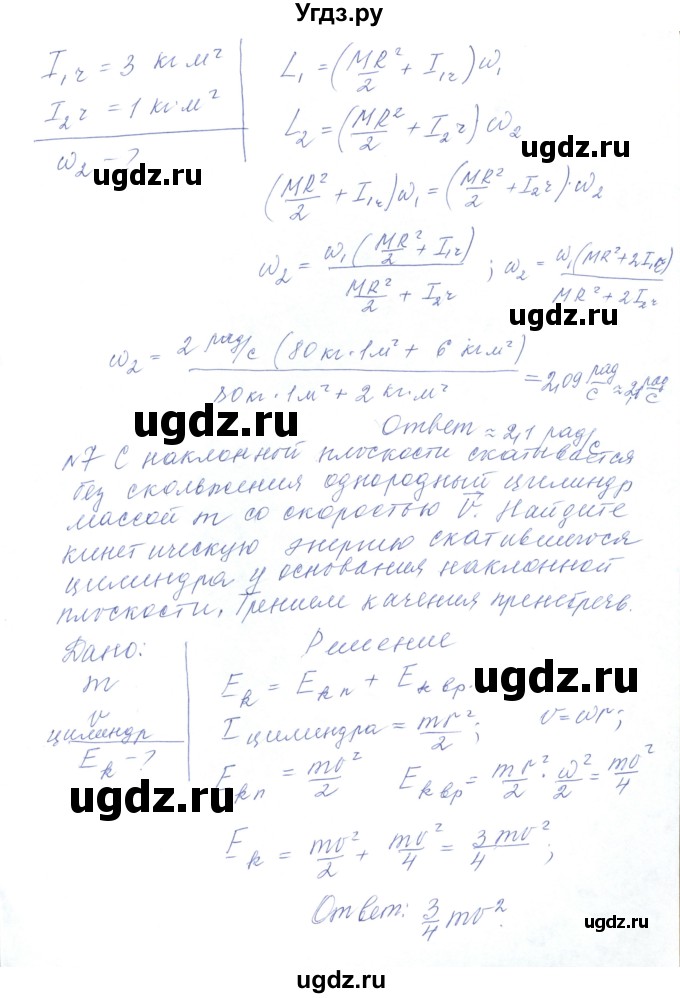 Угдз.ру
I₁ч = 3 кг м²
I₂ч = 1 кг·м²
ω₂ - ?
L₁ = (MR²/2 + I₁ч) ω₁
L₂ = (MR²/2 + I₂ч) ω₂
(MR²/2 + I₁ч) ω₁ = (MR²/2 + I₂ч)·ω₂
ω₂ = ω₁(MR²/2 + I₁ч) / (MR²/2 + I₂ч) ; ω₂ = ω₁(MR² + 2I₁ч) / (MR² + 2I₂ч)
ω₂ = 2 рад/с (80 кг·1м² + 6 кг м²) / (80 кг·1м² + 2 кг·м²) = 2,09 рад/с ≈ 2,1 рад/с
Ответ ≈ 2,1 рад/с
№7 С наклонной плоскости скатывается
без скольжения однородный цилиндр
массой m со скоростью V⃗. Найдите
кинетическую энергию скатившегося
цилиндра у основания наклонной
плоскости. Трением качения пренебречь.
Дано:
m
v
цилиндр
Eк - ?
Решение
Eк = Eкп + Eквр.
I цилиндра = mr²/2; v = ωr;
Eкп = mv²/2 Eквр = mr²/2 · ω²/2 = mv²/4
Eк = mv²/2 + mv²/4 = 3/4 mv²;
Ответ: 3/4 mv².
ugdz.ru
ugdz.ru
ugdz.ru
ugdz.ru
ugdz.ru
ugdz.ru
ugdz.ru
ugdz.ru